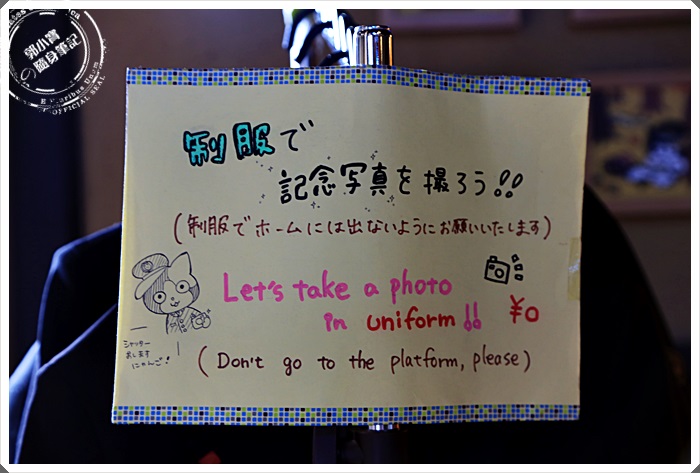 郭小寶
の隨身筆記
OFFICIAL SEAL
制服で
記念写真を撮ろう!!
(制服でホームには出ないようにお願いいたします)
Let's take a photo
in uniform!!
¥0
シャッター
おします
にゃんご!
(Don't go to the platform, please)